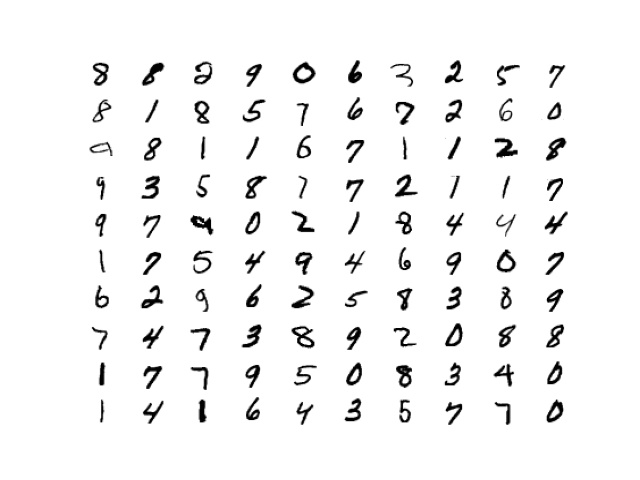 8 8 2 9 0 6 3 2 5 7
8 1 8 5 7 6 7 2 6 0
9 8 1 1 6 7 1 1 2 8
9 3 5 8 7 7 2 1 1 7
9 7 9 0 2 1 8 4 4 4
1 7 5 4 9 4 6 9 0 7
6 2 9 6 2 5 8 3 8 9
7 4 7 3 8 9 2 0 8 8
1 7 7 9 5 0 8 3 4 0
1 4 1 6 4 3 5 7 7 0